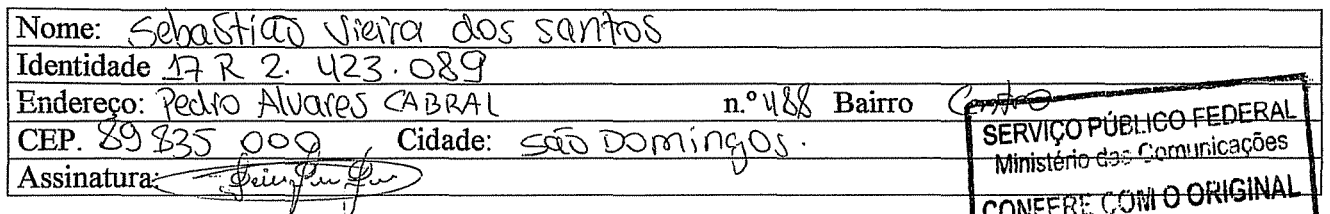 Nome: Sebastião Vieira dos santos
Identidade 17 R 2. 423.089
Endereço: Pedro Alvares CABRAL n.º 488 Bairro Centro
CEP. 89 835 000 Cidade: são Domingos.
Assinatura:
SERVIÇO PÚBLICO FEDERAL
Ministério das Comunicações
CONFERE COM O ORIGINAL